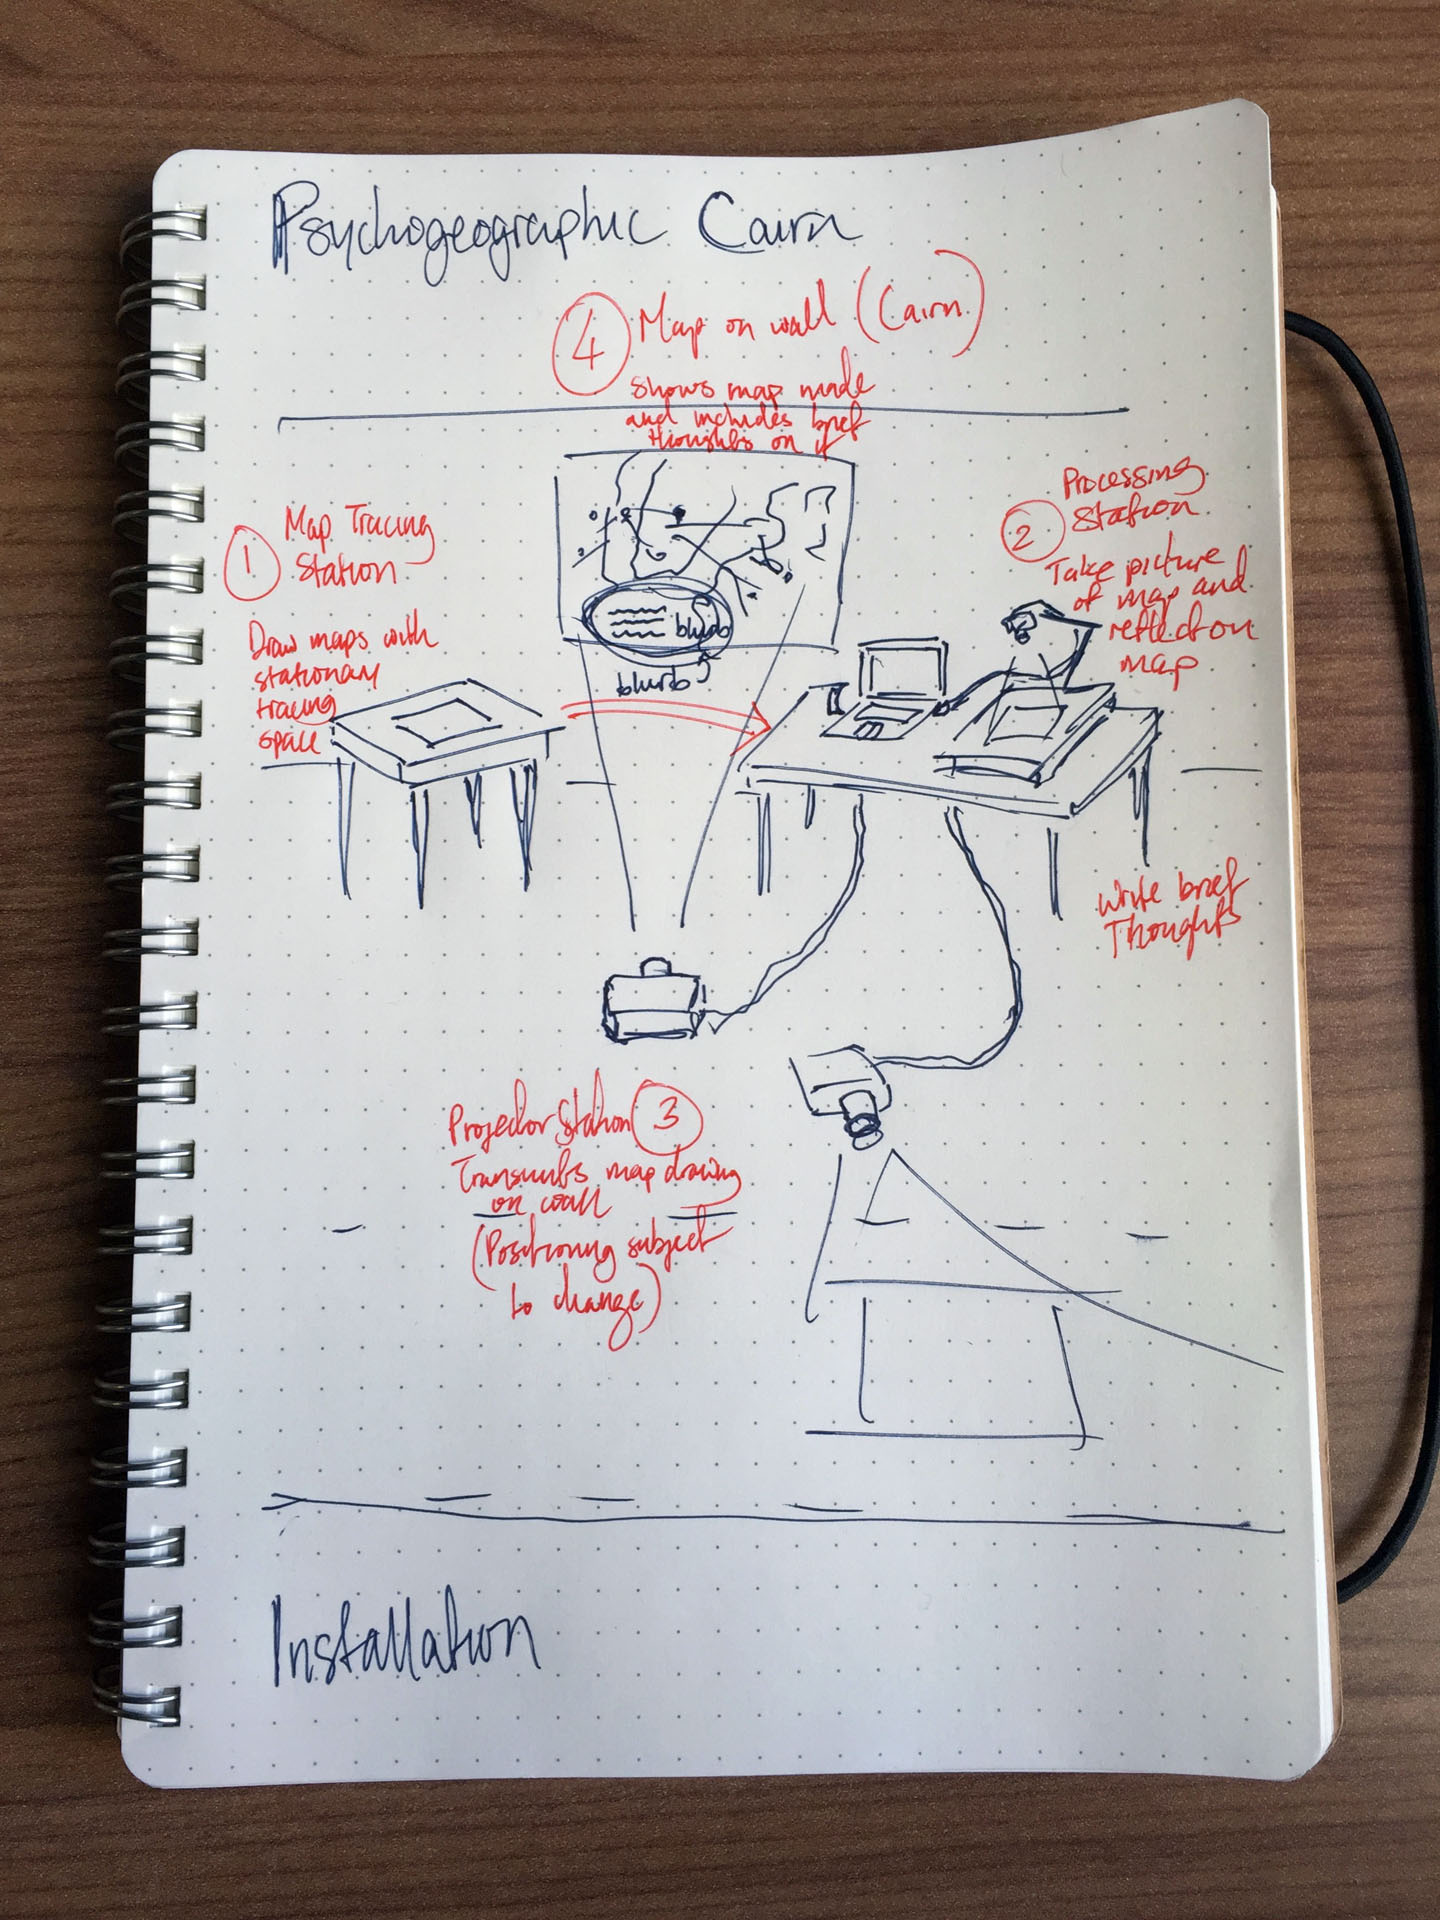 Psychogeographic Cairn
4 Map on wall (Cairn)
shows map made
and includes brief
thoughts on it
1 Map Tracing
Station
Draw maps with
stationary
tracing
space
blurb
blurb
2 Processing
Station
Take picture
of map and
reflect on
map
Write brief
Thoughts
Projector Station 3
Transmits map drawing
on wall
(Positioning subject
to change)
Installation